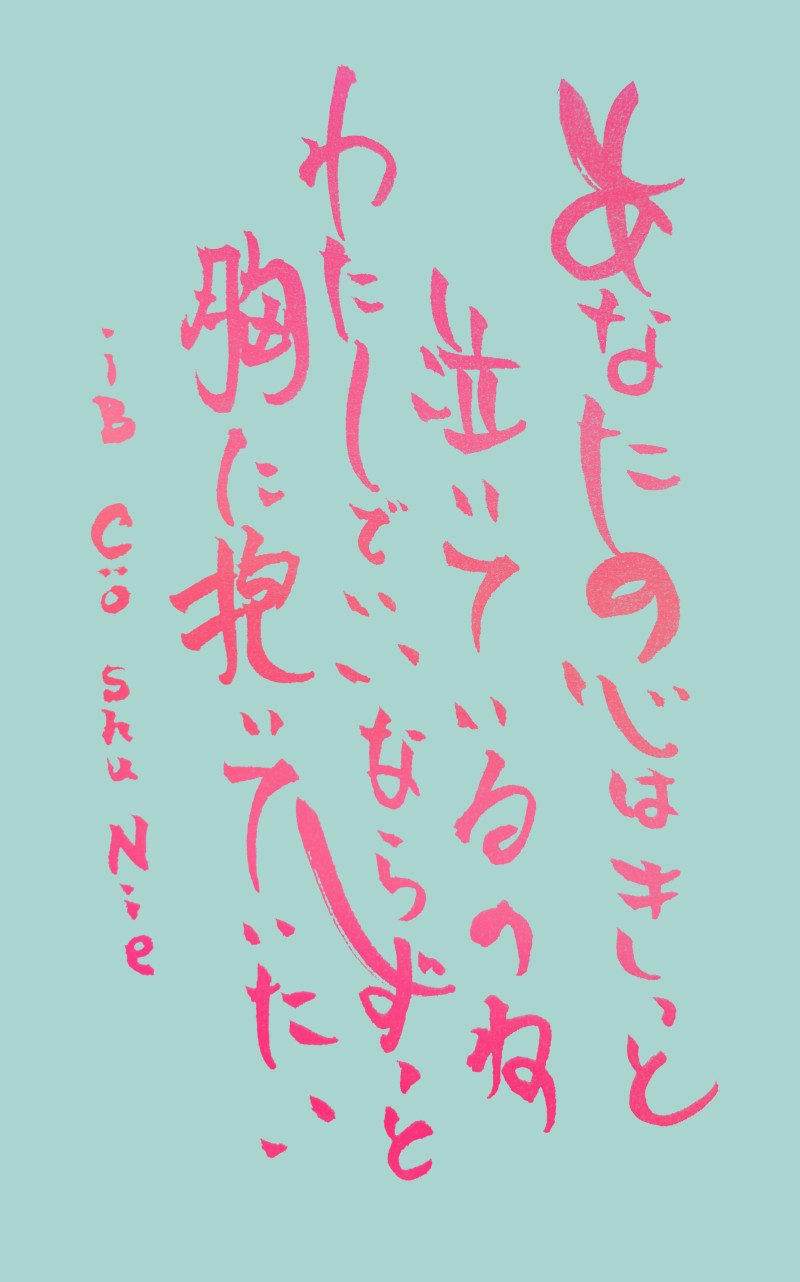 あなたの心はきっと
泣いているのね
わたしでいいならずっと
胸に抱いていたい
iB Cö Shu Nie